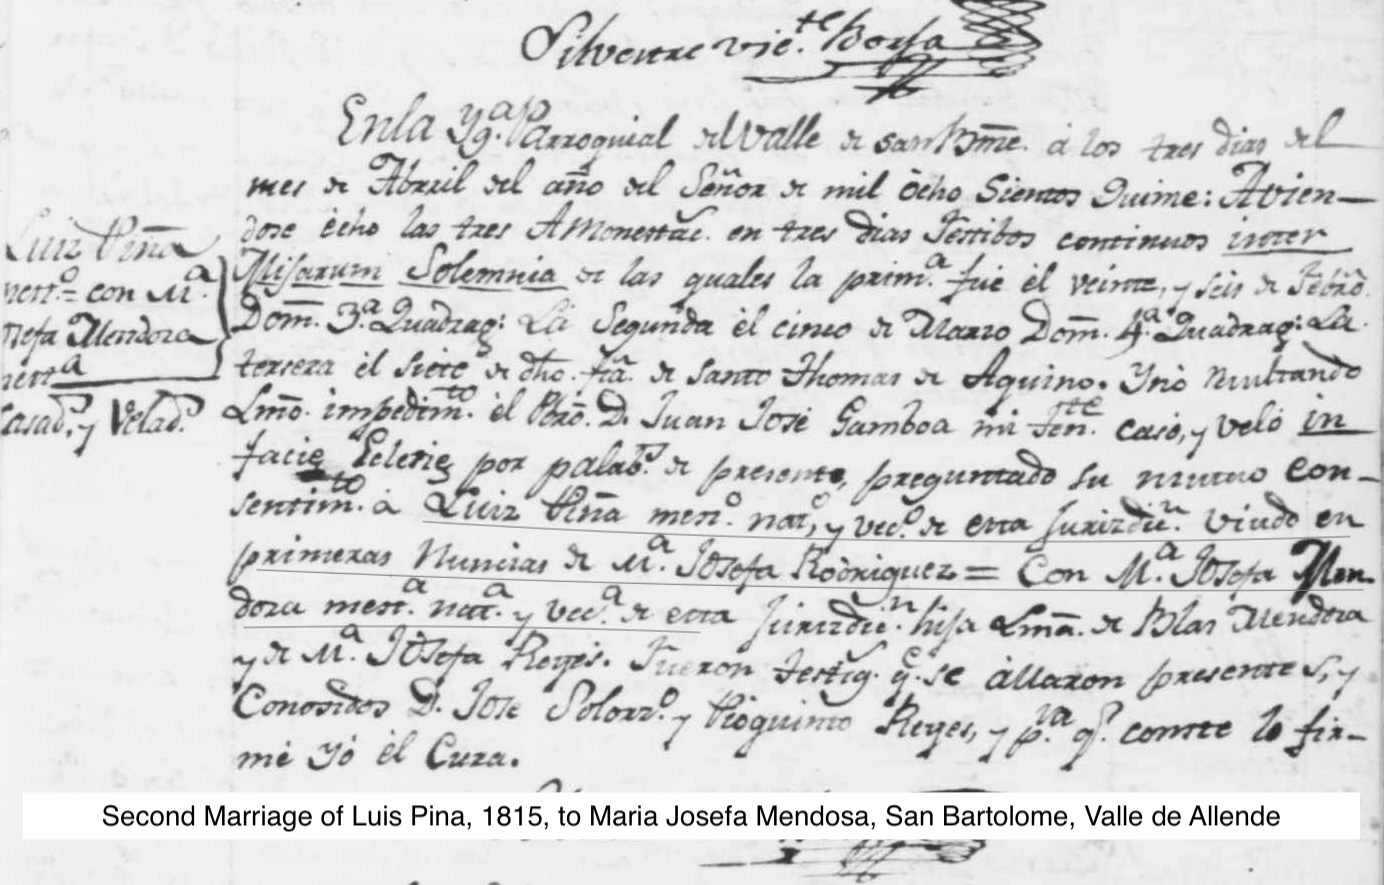 Silvestre Vic.te Borja
En la Yg.a Parroquial del Valle de san Bme. á los tres dias del
mes de Abril del año del Señor de mil ócho Sientos Quinse: Avien-
dose écho las tres Amonestac. en tres dias Festibos continuos inter
Misarum Solemnia de las quales la prim.a fue él veinte, y seis de Febro.
Dom. 3.a Quadrag: La Segunda él cinco de Marzo Dom. 4.a Quadrag: La
tersera él siete de dho. fia. de Santo Thomas de Aquino. Y no resultando
Lmo. impedim.to él Bro. D. Juan José Gamboa mi Ten.te casó, y veló in
facie Eclecie por palab.s de presente, preguntado su mutuo con-
sentim.to á Luiz Piña mest.o nat.o, y vec.o de esta Jurizdic.n viudo en
primeras Nuncias de M.a Josefa Rodriguez = Con M.a Josefa Men-
doza mest.a nat.a y vec.a de esta Jurizdic.n hija Lma. de Blas Mendoza
y de M.a Josefa Reyes. Fueron testig. q.e se állaron presentes, y
Conosidos D. Jose Solorz.o y Pioquinto Reyes, y p.a q.e conste lo fir-
mé Yó él Cura.
Luiz Piña
mest.o = con M.a
Josefa Mendoza
mest.a
Casad.s y Velad.s
Second Marriage of Luis Pina, 1815, to Maria Josefa Mendosa, San Bartolome, Valle de Allende